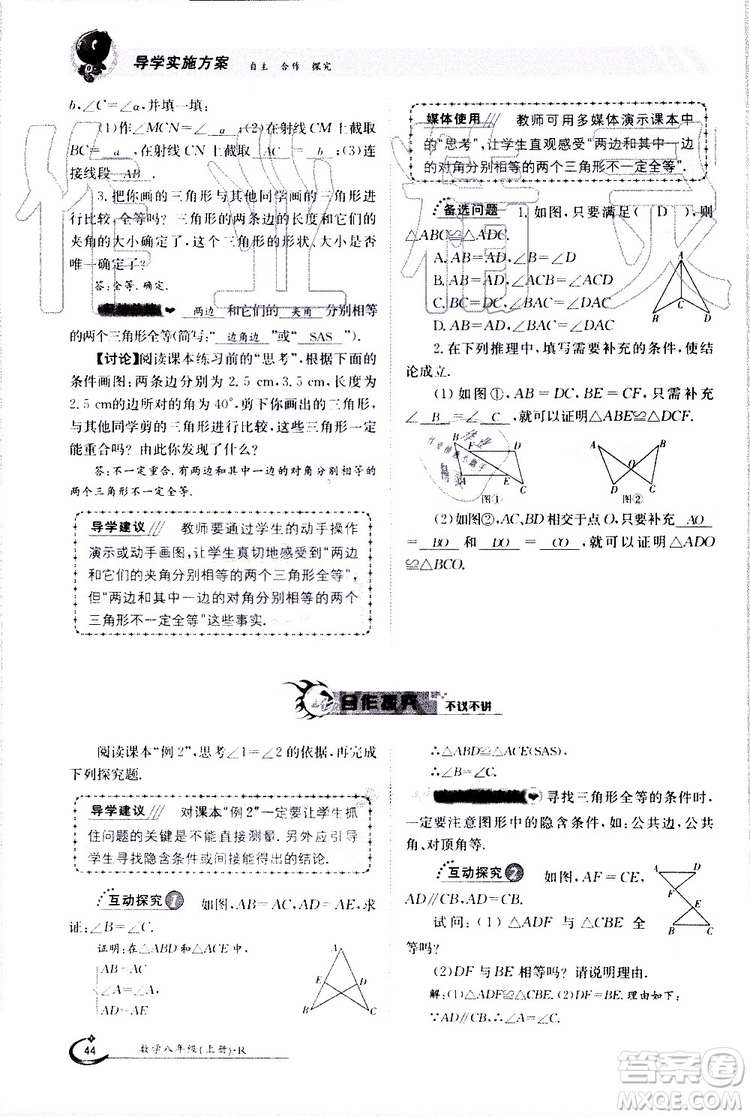 导学实施方案 自主 合作 探究
b,∠C=∠α,并填一填:
(1)作∠MCN=∠ α ;(2)在射线CM上截取
BC= a ,在射线CN上截取 AC = b ;(3)连
接线段 AB .
3.把你画的三角形与其他同学画的三角形
进行比较,全等吗?三角形的两条边的长度和它们的
夹角的大小确定了,这个三角形的形状、大小是否
唯一确定了?
答:全等.确定.
两边 和它们的 夹角 分别相等
的两个三角形全等(简写:“ 边角边 ”或“ SAS ”).
【讨论】阅读课本练习前的“思考”,根据下面的
条件画图:两边分别为2.5 cm,3.5 cm,长度为
2.5 cm的边所对的角为40°,剪下你画出的三角形,
与其他同学剪的三角形进行比较,这些三角形一定
能重合吗?由此你发现了什么?
答:不一定重合.有两边和其中一边的对角分别相等的
两个三角形不一定全等.
导学建议 教师要通过学生的动手操作
演示或动手画图,让学生真切地感受到“两边
和它们的夹角分别相等的两个三角形全等”,
但“两边和其中一边的对角分别相等的两个
三角形不一定全等”这些事实.
媒体使用 教师可用多媒体演示课本中
的“思考”,让学生直观感受“两边和其中一边
的对角分别相等的两个三角形不一定全等”.
备选问题 1.如图,只要满足( D ),则
△ABC≌△ADC.
A.AB=AD,∠B=∠D
B.AB=AD,∠ACB=∠ACD
C.BC=DC,∠BAC=∠DAC
D.AB=AD,∠BAC=∠DAC
A
B C D
2.在下列推理中,填写需要补充的条件,使结
论成立.
(1)如图①,AB=DC,BE=CF,只要补充
∠ B =∠ C ,就可以证明△ABE≌△DCF.
B F D
A E C
图①
A B
O
D C
图②
(2)如图②,AC,BD相交于点O,只要补充 AO
= BO 和 DO = CO ,就可以证明△ADO
≌△BCO.
合作探究 不议不讲
阅读课本“例2”,思考∠1=∠2的依据,再完成
下列探究题.
导学建议 对课本“例2”一定要让学生抓
住问题的关键是不能直接测量.另外应引导
学生寻找隐含条件或间接得出的结论.
互动探究1 如图,AB=AC,AD=AE,求
证:∠B=∠C.
证明:在△ABD和△ACE中,
AB=AC
∠A=∠A,
AD=AE
A
E D
B C
∴△ABD≌△ACE(SAS).
∴∠B=∠C.
寻找三角形全等的条件时,
一定要注意图形中的隐含条件,如:公共边、公共
角、对顶角等.
互动探究2 如图,AF=CE,
AD∥CB,AD=CB.
A D
E
F
B C
试问:(1)△ADF与△CBE全
等吗?
(2)DF与BE相等吗?请说明理由.
解:(1)△ADF≌△CBE.(2)DF=BE.理由如下:
44 数学八年级(上册)·R
作业精灵
答案圈
MXQE.COM